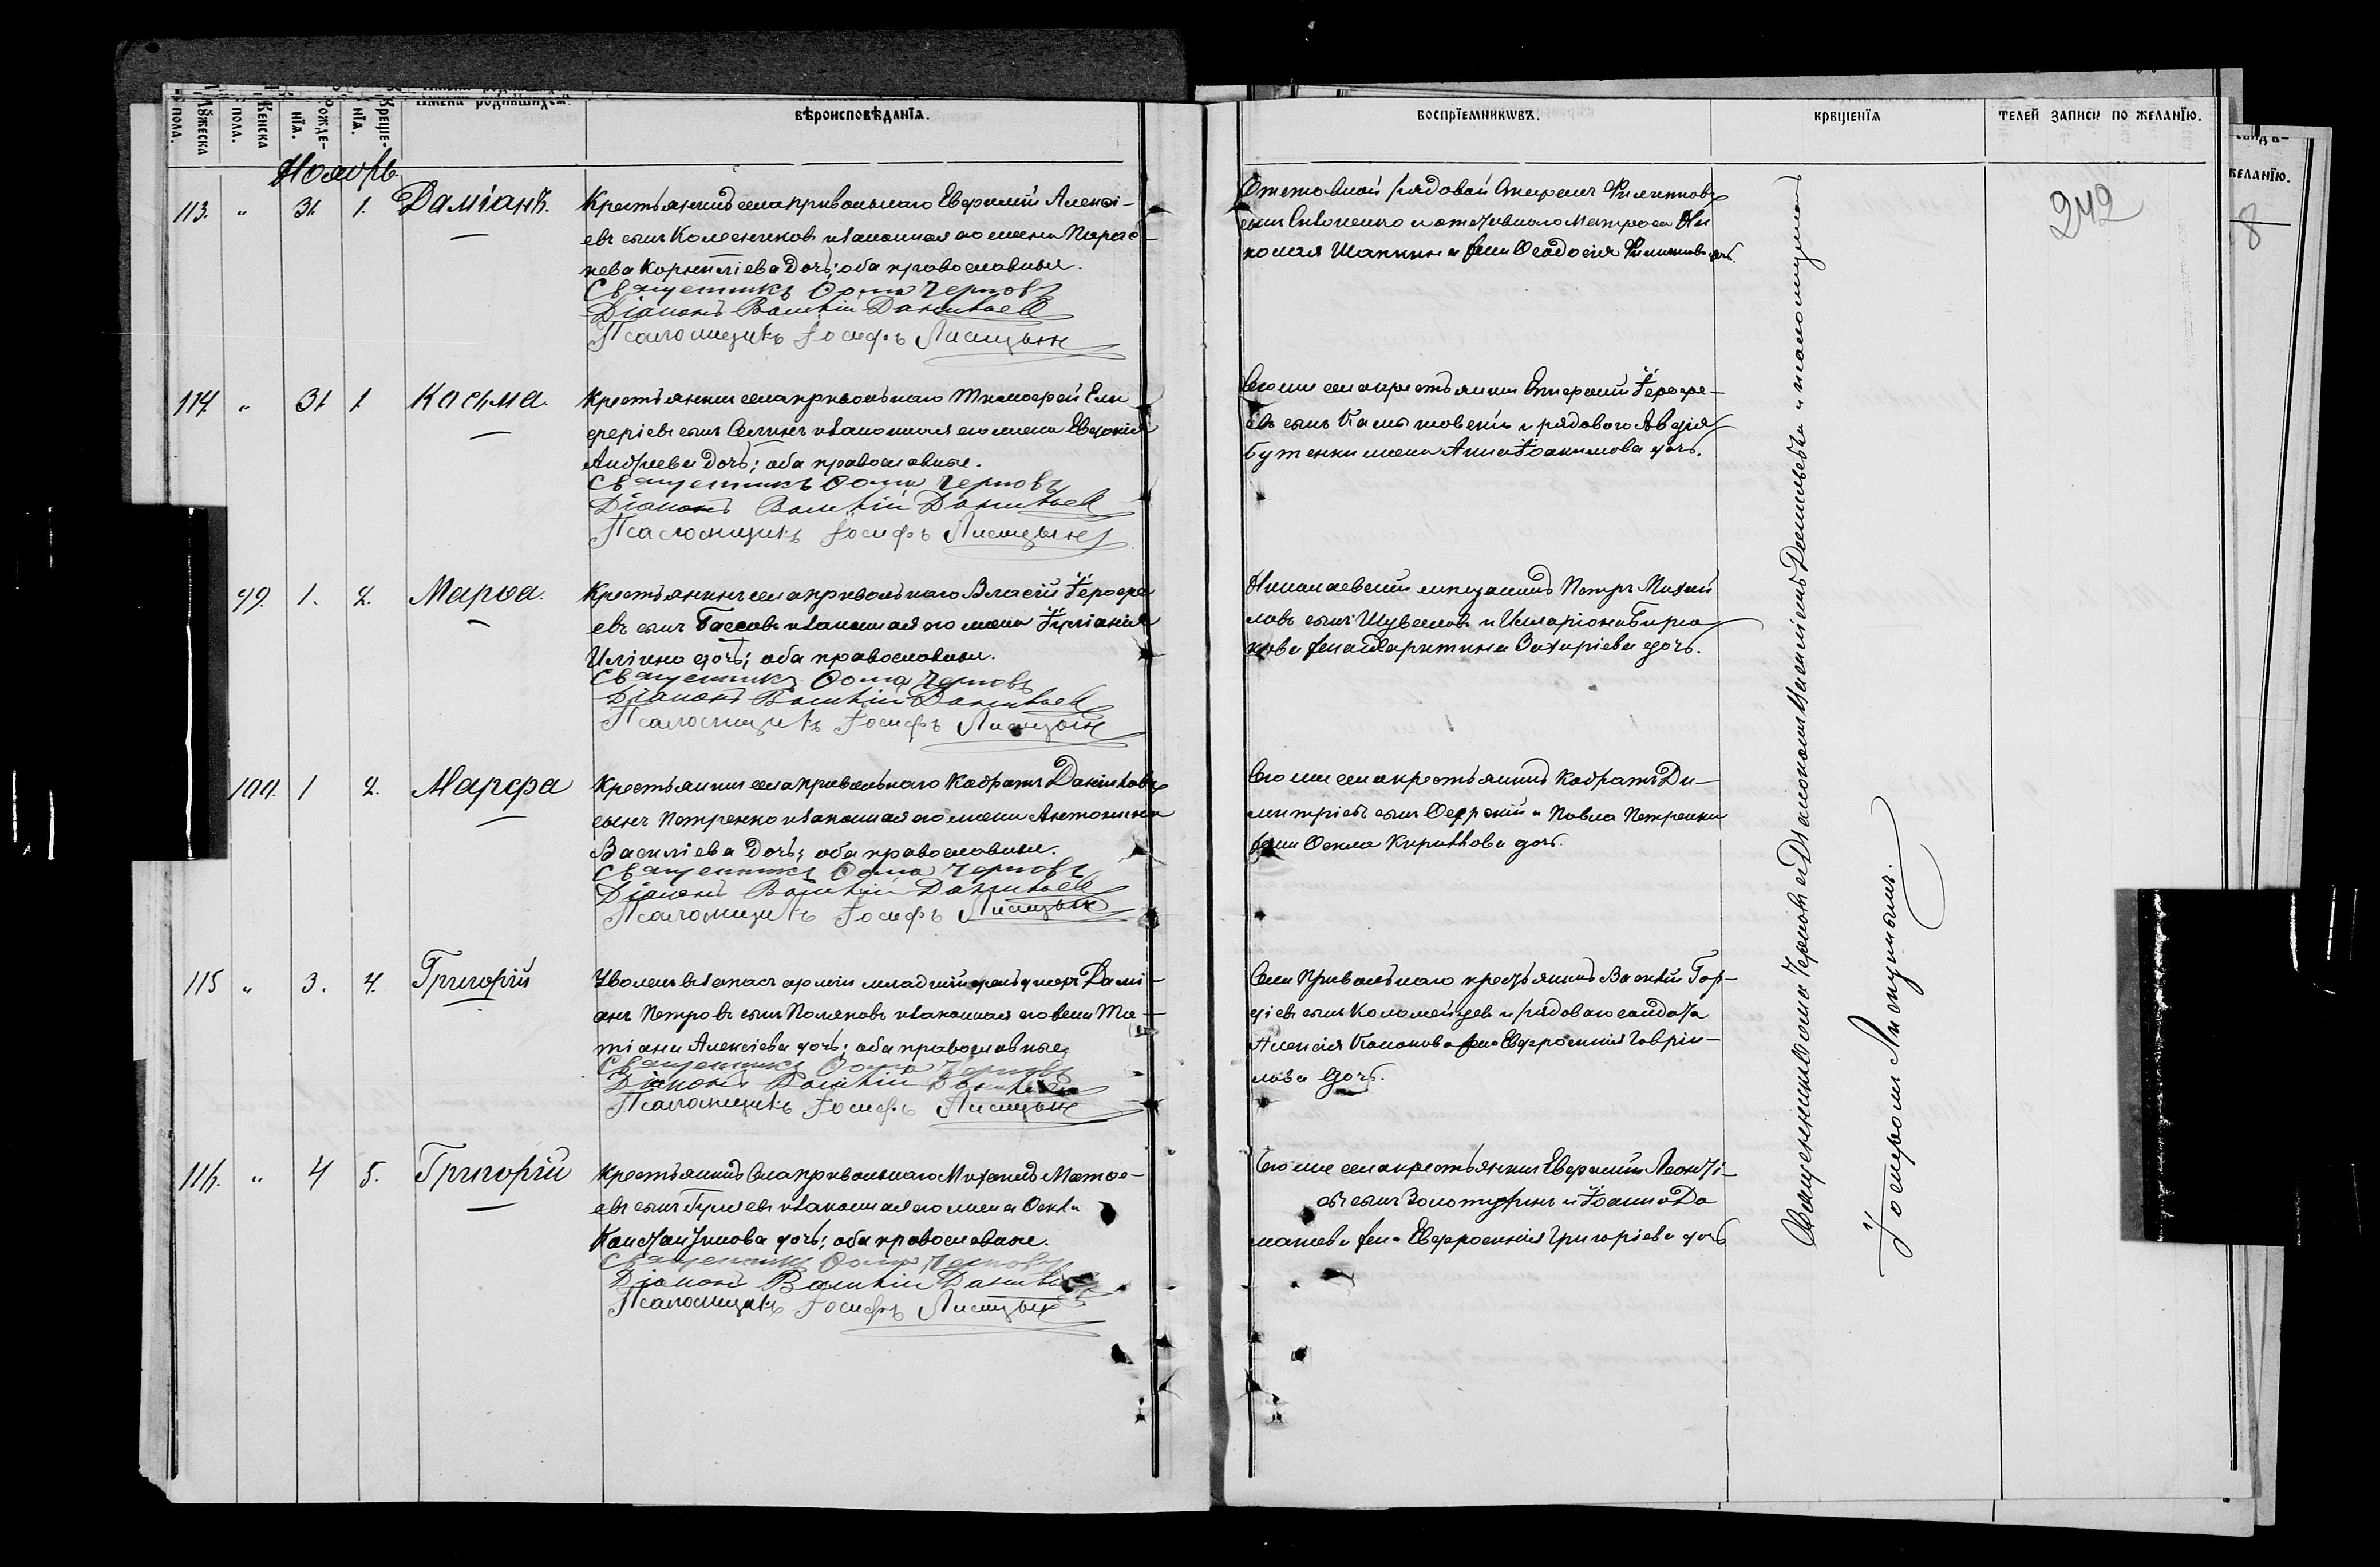 Мꙋжеска пола.
Женска пола.
Рожденїѧ.
Крещенїѧ.
Имена родившихсѧ.
вѣроисповѣданїѧ.
воспрїемникѡвъ.
крещенїѧ
телей записи по желанїю.
желанїю.
Ноябрь
242
113. " 31. 1. Даміанъ.
Крестьянинъ села Привольнаго Евфимій Алексі-
евъ сынъ Колесниковъ и законная его жена Парас-
кева Корниліева дочь; оба православные.
Священникъ Ѳома Черновъ
Діаконъ Василій Данильев
Псаломщикъ Іосифъ Лисицын
Отставной рядовой
сынъ и отставнаго матроса Ни
колая жена Ѳеодосія
114. " 31. 1. Косьма.
Крестьянинъ села Привольнаго Тимофей Ели
феріевъ сынъ и законная его жена Евдокія
Андреева дочь; оба православные.
Священникъ Ѳома Черновъ
Діаконъ Василій Данильев
Псаломщикъ Іосифъ Лисицын
Того же села крестьянинъ Іерофе-
евъ сынъ и рядового Авдія
Бутенки жена Анна Іоакимова дочь.
99. 1. 2. Марѳа.
Крестьянинъ села Привольнаго Власій Іерофе
евъ сынъ Бассовъ и законная его жена Іуліанія
Иліина дочь; оба православные.
Священникъ Ѳома Черновъ
Діаконъ Василій Данильев
Псаломщикъ Іосифъ Лисицын
Николаевскій мещанинъ Петръ Михай
ловъ сынъ Шуваловъ и Иларіона Бирю
кова жена Харитина Захаріева дочь.
100. 1 2. Марфа
Крестьянинъ села Привольнаго Кодратъ Даниловъ
сынъ Петренко и законная его жена Антонина
Василіева дочь; оба православные.
Священникъ Ѳома Черновъ
Діаконъ Василій Данильев
Псаломщикъ Іосифъ Лисицын
Того же села крестьянинъ Кодратъ Ди-
митріевъ сынъ и Павла Петренки
жена Ѳекла Кириллова дочь.
115 " 3. 4. Григорій
Уволен. въ запасъ арміи младшій Дамі-
анъ Петровъ сынъ Поляковъ и законная его жена Та-
тіана Алексіева дочь; оба православные.
Священникъ Ѳома Черновъ
Діаконъ Василій Данильев
Псаломщикъ Іосифъ Лисицын
Села Привольнаго крестьянинъ Василій Гор-
діевъ сынъ Коломейцевъ и рядоваго солдата
Алексія жена Евфросинія Гаврии-
лова дочь.
116. " 4 5. Григорій
Крестьянинъ села Привольнаго Михаилъ Матѳе-
евъ сынъ Гуляевъ и законная его жена Ѳекла
Константинова дочь; оба православные.
Священникъ Ѳома Черновъ
Діаконъ Василій Данильев
Псаломщикъ Іосифъ Лисицын
Того же села крестьянинъ Евфимій Леонті-
евъ сынъ Золотухинъ и Іоанна До
машева жена Евфросинія Григоріева дочь
Священникъ Ѳома Черновъ съ Діакономъ Василіемъ Данильевымъ и псаломщикомъ
Іосифомъ Лисицынымъ.